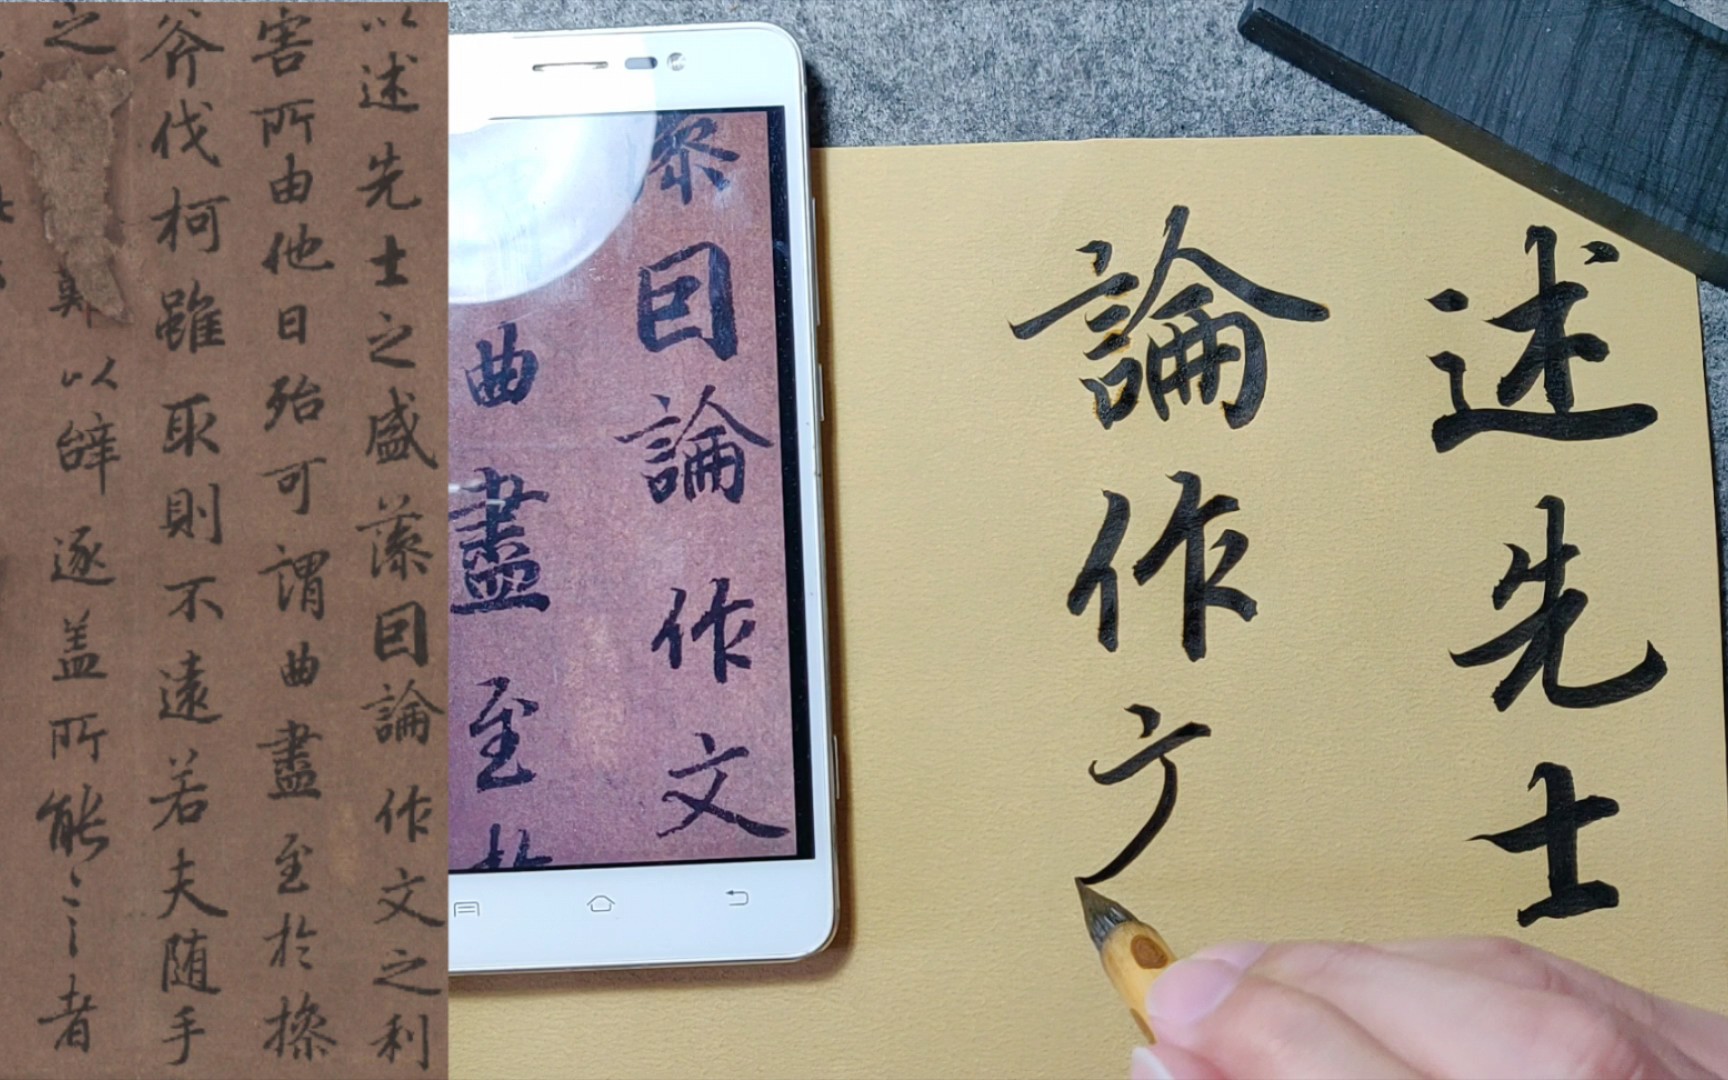 以述先士之盛藻囙論作文之利
害所由他日殆可謂曲盡至於操
斧伐柯雖取則不遠若夫随手
之
以辝逐盖所能言者
囙論作文
曲盡至於
述先士
論作